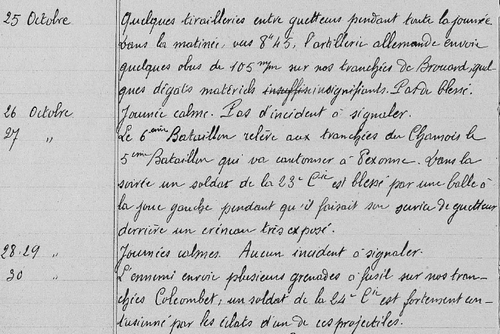 25 Octobre Quelques tirailleries entre guetteurs pendant toute la journée
Dans la matinée, vers 8h45, l'artillerie allemande envoie
quelques obus de 105 m/m sur nos tranchées de Brouard, quel
ques dégâts matériels insuffis insignifiants. Pas de blessé.
26 Octobre Journée calme. Pas d'incident à signaler.
27 " Le 6eme Bataillon relève aux tranchées du Chamois le
5eme Bataillon qui va cantonner à Pexonne. Dans la
soirée un soldat de la 23e Cie est blessé par une balle à
la joue gauche pendant qu'il faisait son service de guetteur
derrière un créneau très exposé.
28.29 " Journées calmes. Aucun incident à signaler.
30 " L'ennemi envoie plusieurs grenades à fusil sur nos tran-
chées Colcombet, un soldat de la 24e Cie est fortement con-
tusionné par les éclats d'un de ces projectiles.